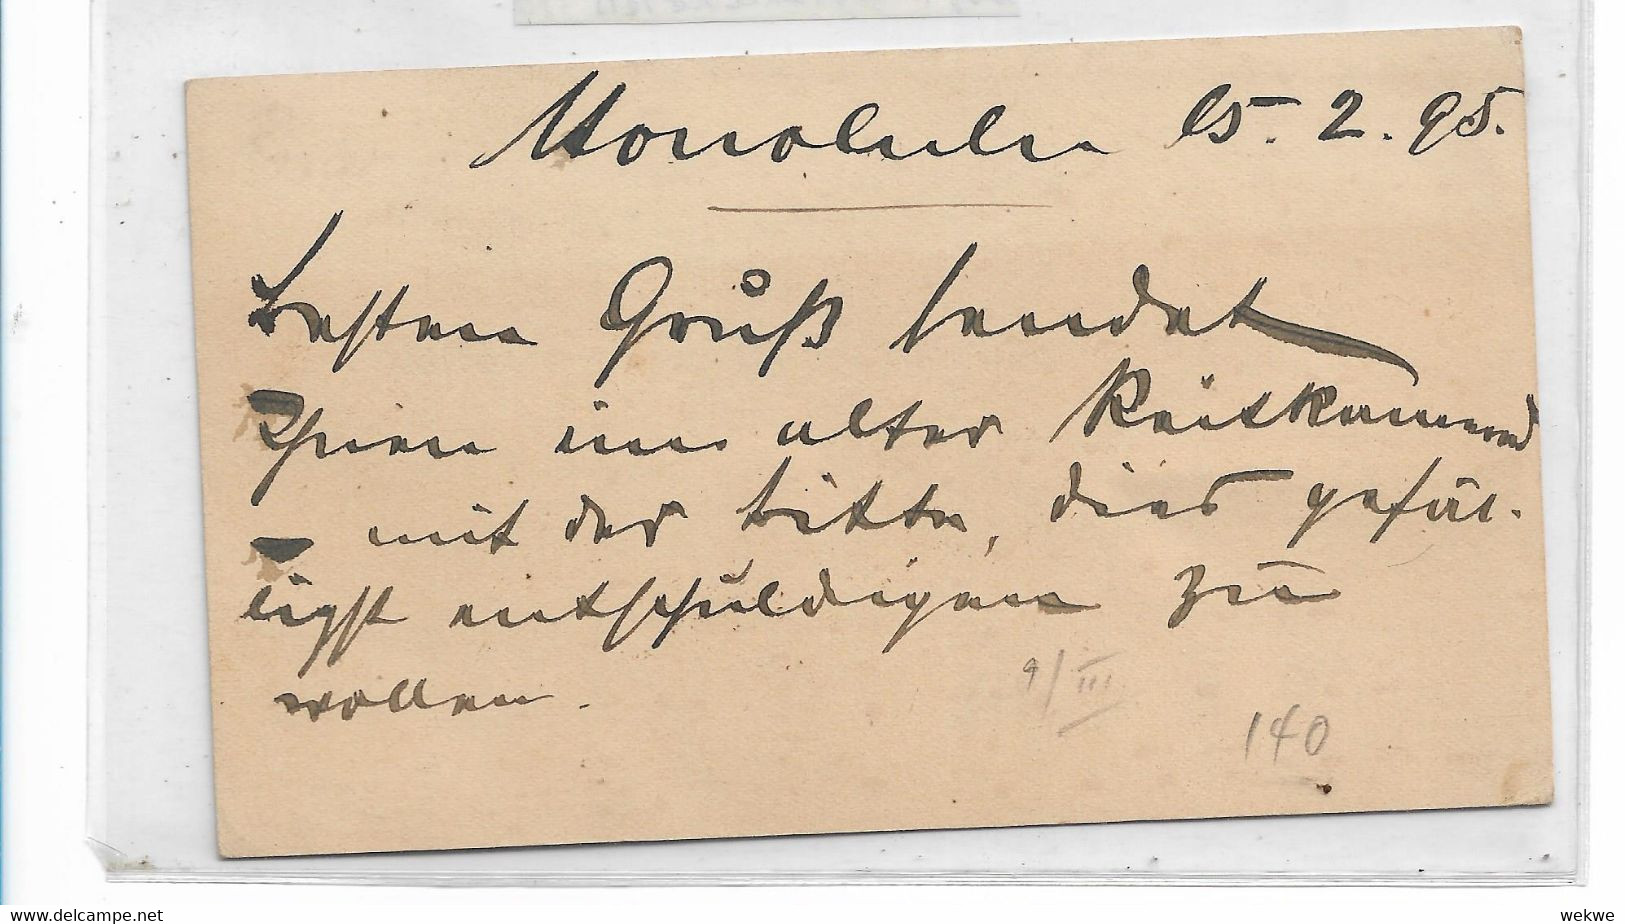 Honolulu 15. 2. 95.
besten Gruß sendet
Ihnen im alter Reiskamerad
– mit der bitte, dies gefäl-
ligst entschuldigen zu
wollen.
9/III
140
delcampe.net
wekwe